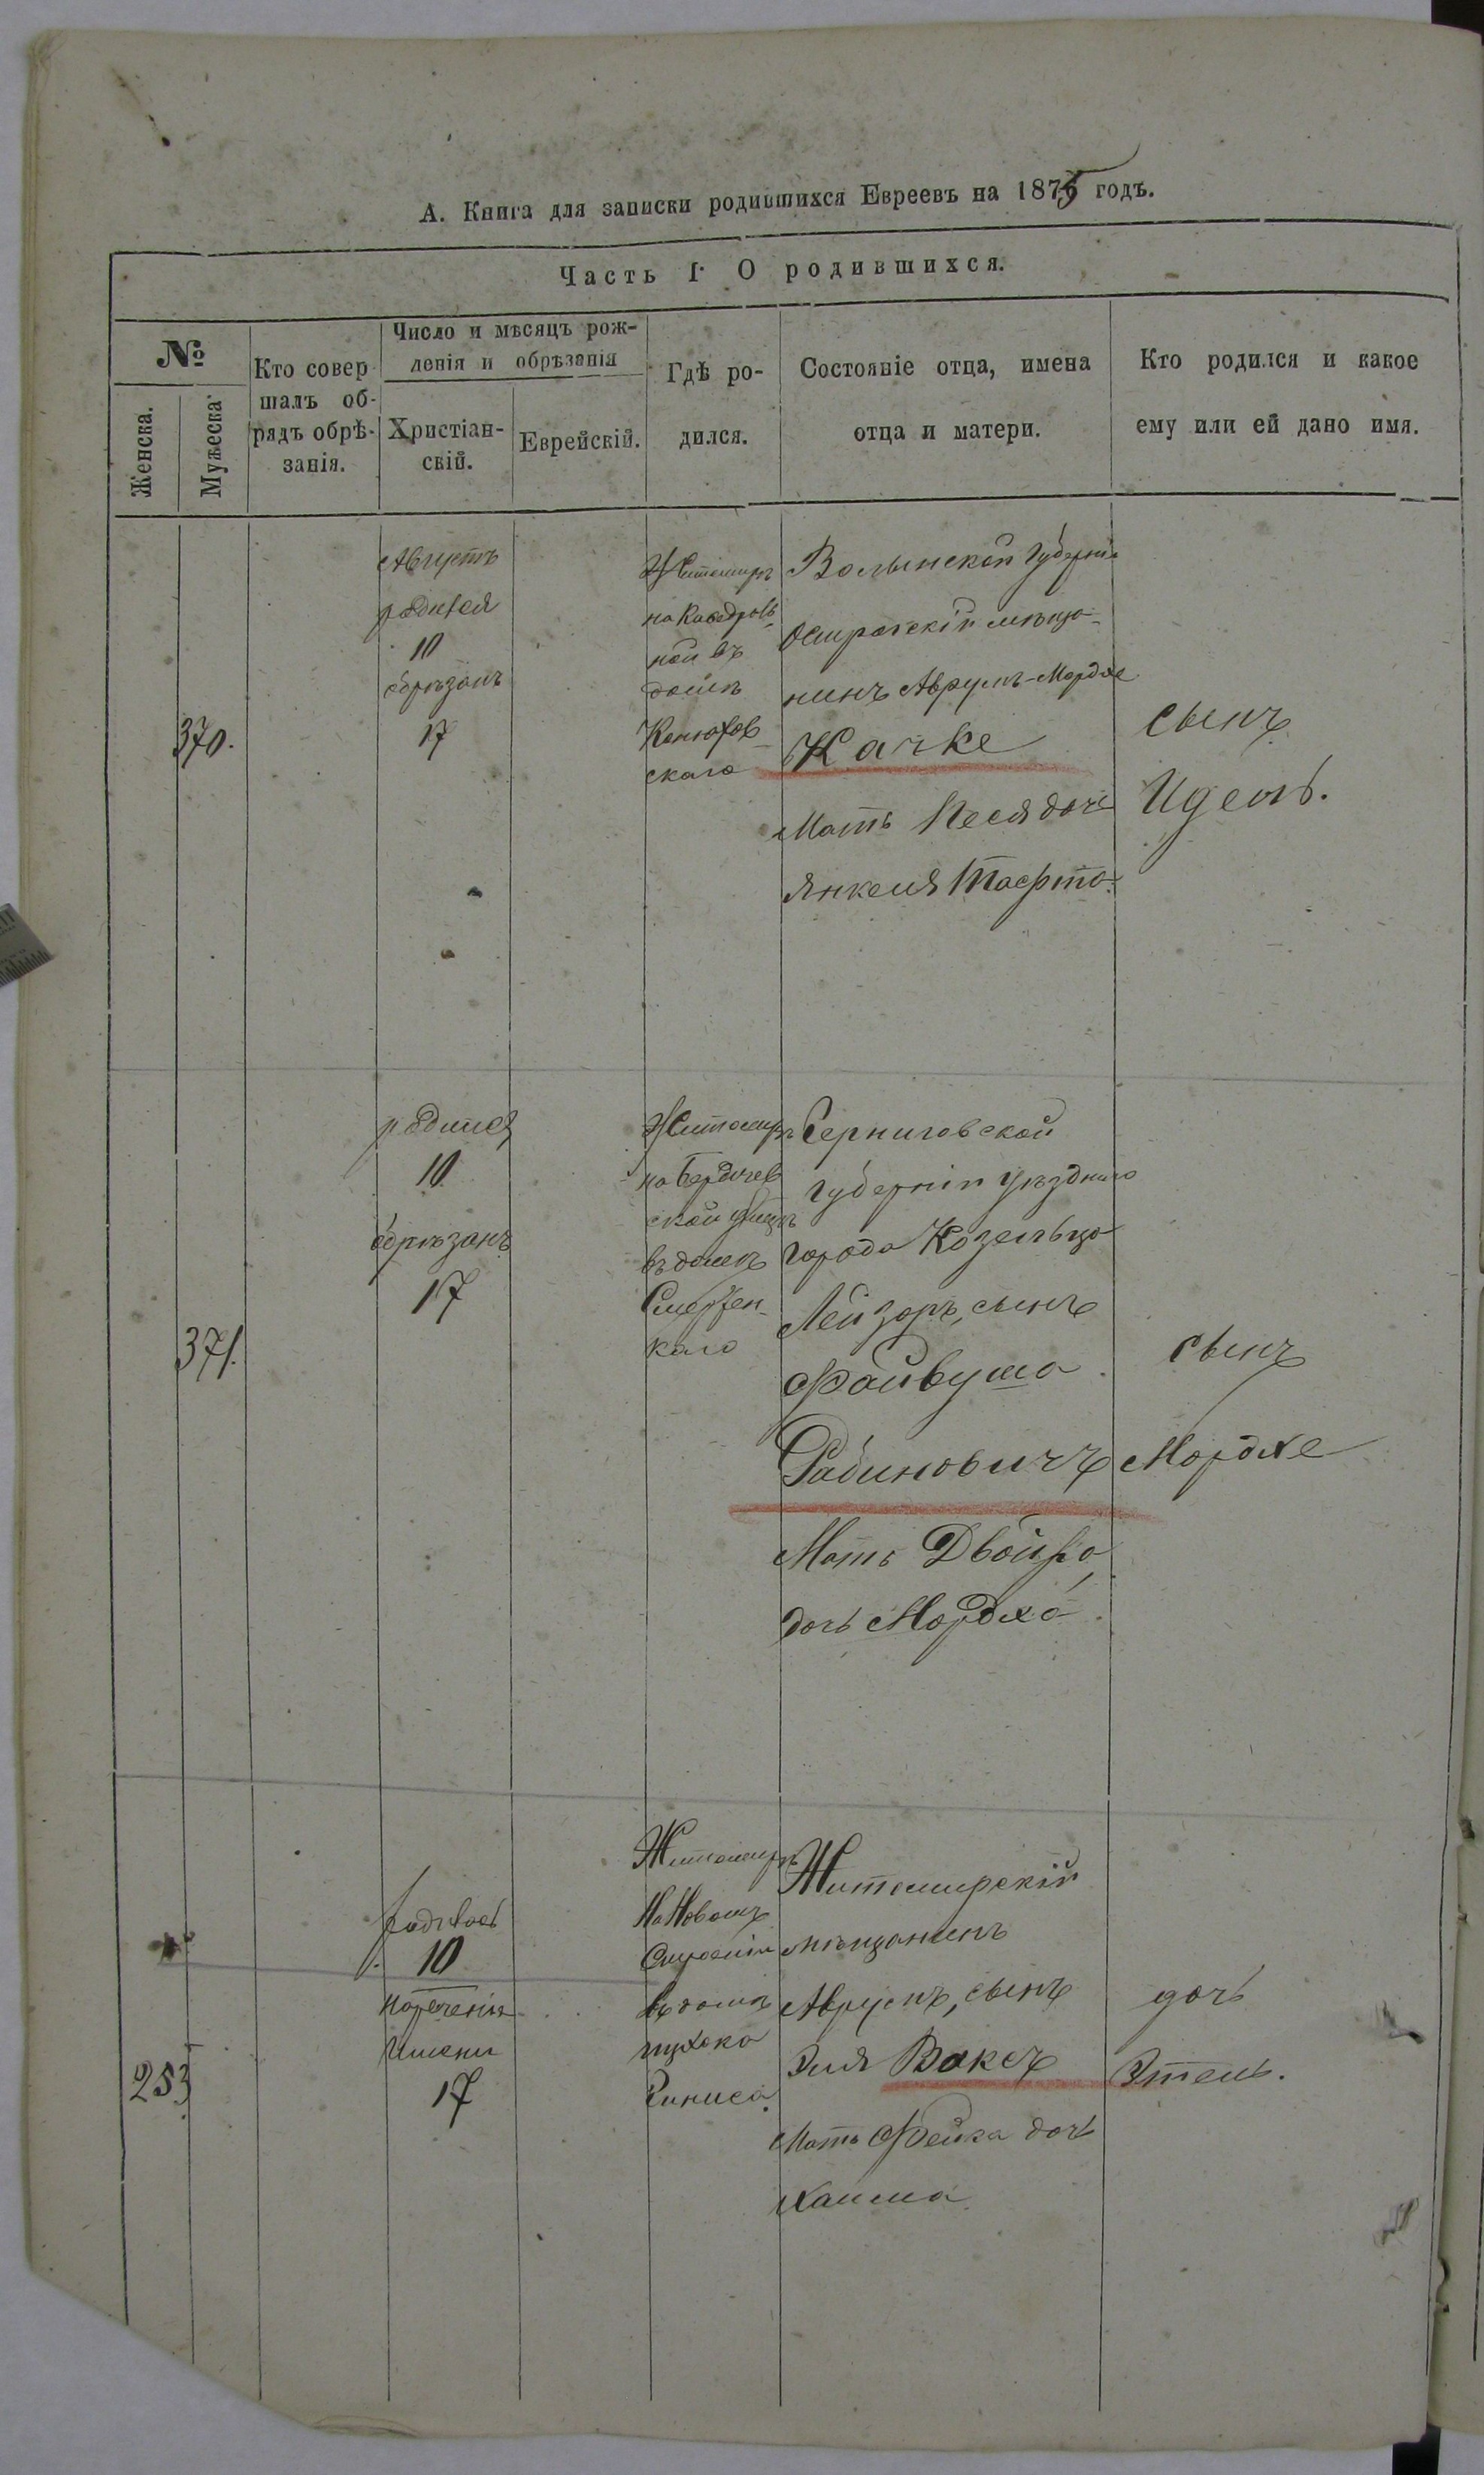 А. Книга для записки родившихся Евреевъ на 1875 годъ.
Часть I. О родившихся.
№
Женска.
Мужеска
Кто совер
шалъ об-
рядъ обрѣ-
занія.
Число и мѣсяцъ рож-
денія и обрѣзанія
Христіан-
скій.
Еврейскій.
Гдѣ ро-
дился.
Состояніе отца, имена
отца и матери.
Кто родился и какое
ему или ей дано имя.
370.
Августъ
родился
10
обрѣзанъ
17
Житомиръ
на Каѳедраль
ной въ
домѣ
Конюхов
скаго
Волынской Губерніи
Острожскій мѣща-
нинъ Аврумъ-Мордхе
Качке
Мать Песя дочь
Янкеля
сынъ
Идель.
371.
родился
10
обрѣзанъ
17
Житомиръ
на Бердичев
ской улицѣ
въ домѣ
каго
Черниговской
Губерніи уѣзднаго
города Козельца
Лейзоръ, сынъ
Файвуша
Рабиновичъ
Мать Двойра
дочь Мордха
сынъ
Мордхе
253
родилась
10
нареченія
имени
17
Житомиръ
На Новомъ
Строеніи
въ домѣ
Житомирскій
мѣщанинъ
Аврумъ, сынъ
ЭляВаксъ
Мать Фейга дочь
Хаима
дочь
Этель.